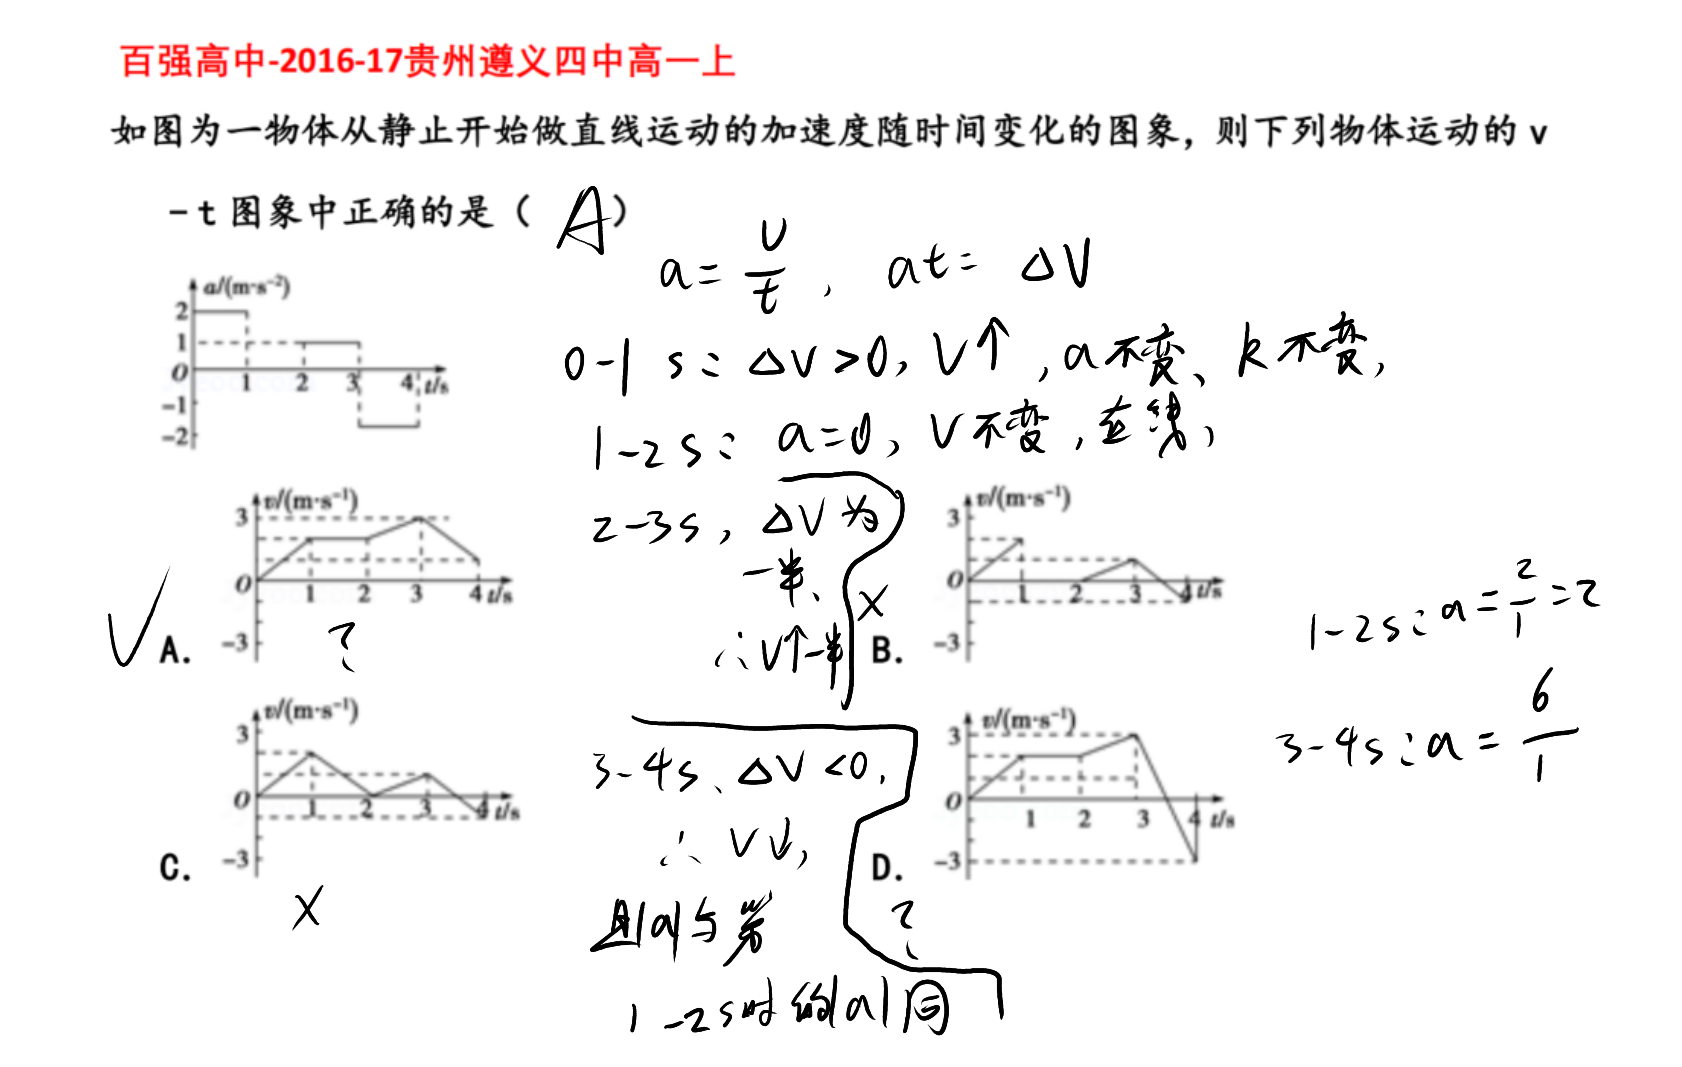 百强高中-2016-17贵州遵义四中高一上
如图为一物体从静止开始做直线运动的加速度随时间变化的图象，则下列物体运动的 v
－t 图象中正确的是（ A ）
a = v/t ， at = Δv
a/(m·s⁻²)
2
1
0
-1
-2
1 2 3 4 t/s
0-1 s： Δv>0, v↑ , a不变、k不变,
1-2 s： a=0, v不变, 直线,
2-3 s, Δv 为
一半、
∴ v↑一半
3-4s、Δv<0,
∴ v↓,
且|a|与第
1-2s时的|a|同
v/(m·s⁻¹)
3
0
-3
1 2 3 4 t/s
√ A. ?
v/(m·s⁻¹)
3
0
-3
1 2 3 4 t/s
× B.
1-2s： a = 2/1 = 2
3-4s： a = 6/1
v/(m·s⁻¹)
3
0
-3
1 2 3 4 t/s
C. ×
v/(m·s⁻¹)
3
0
-3
1 2 3 4 t/s
D. ?